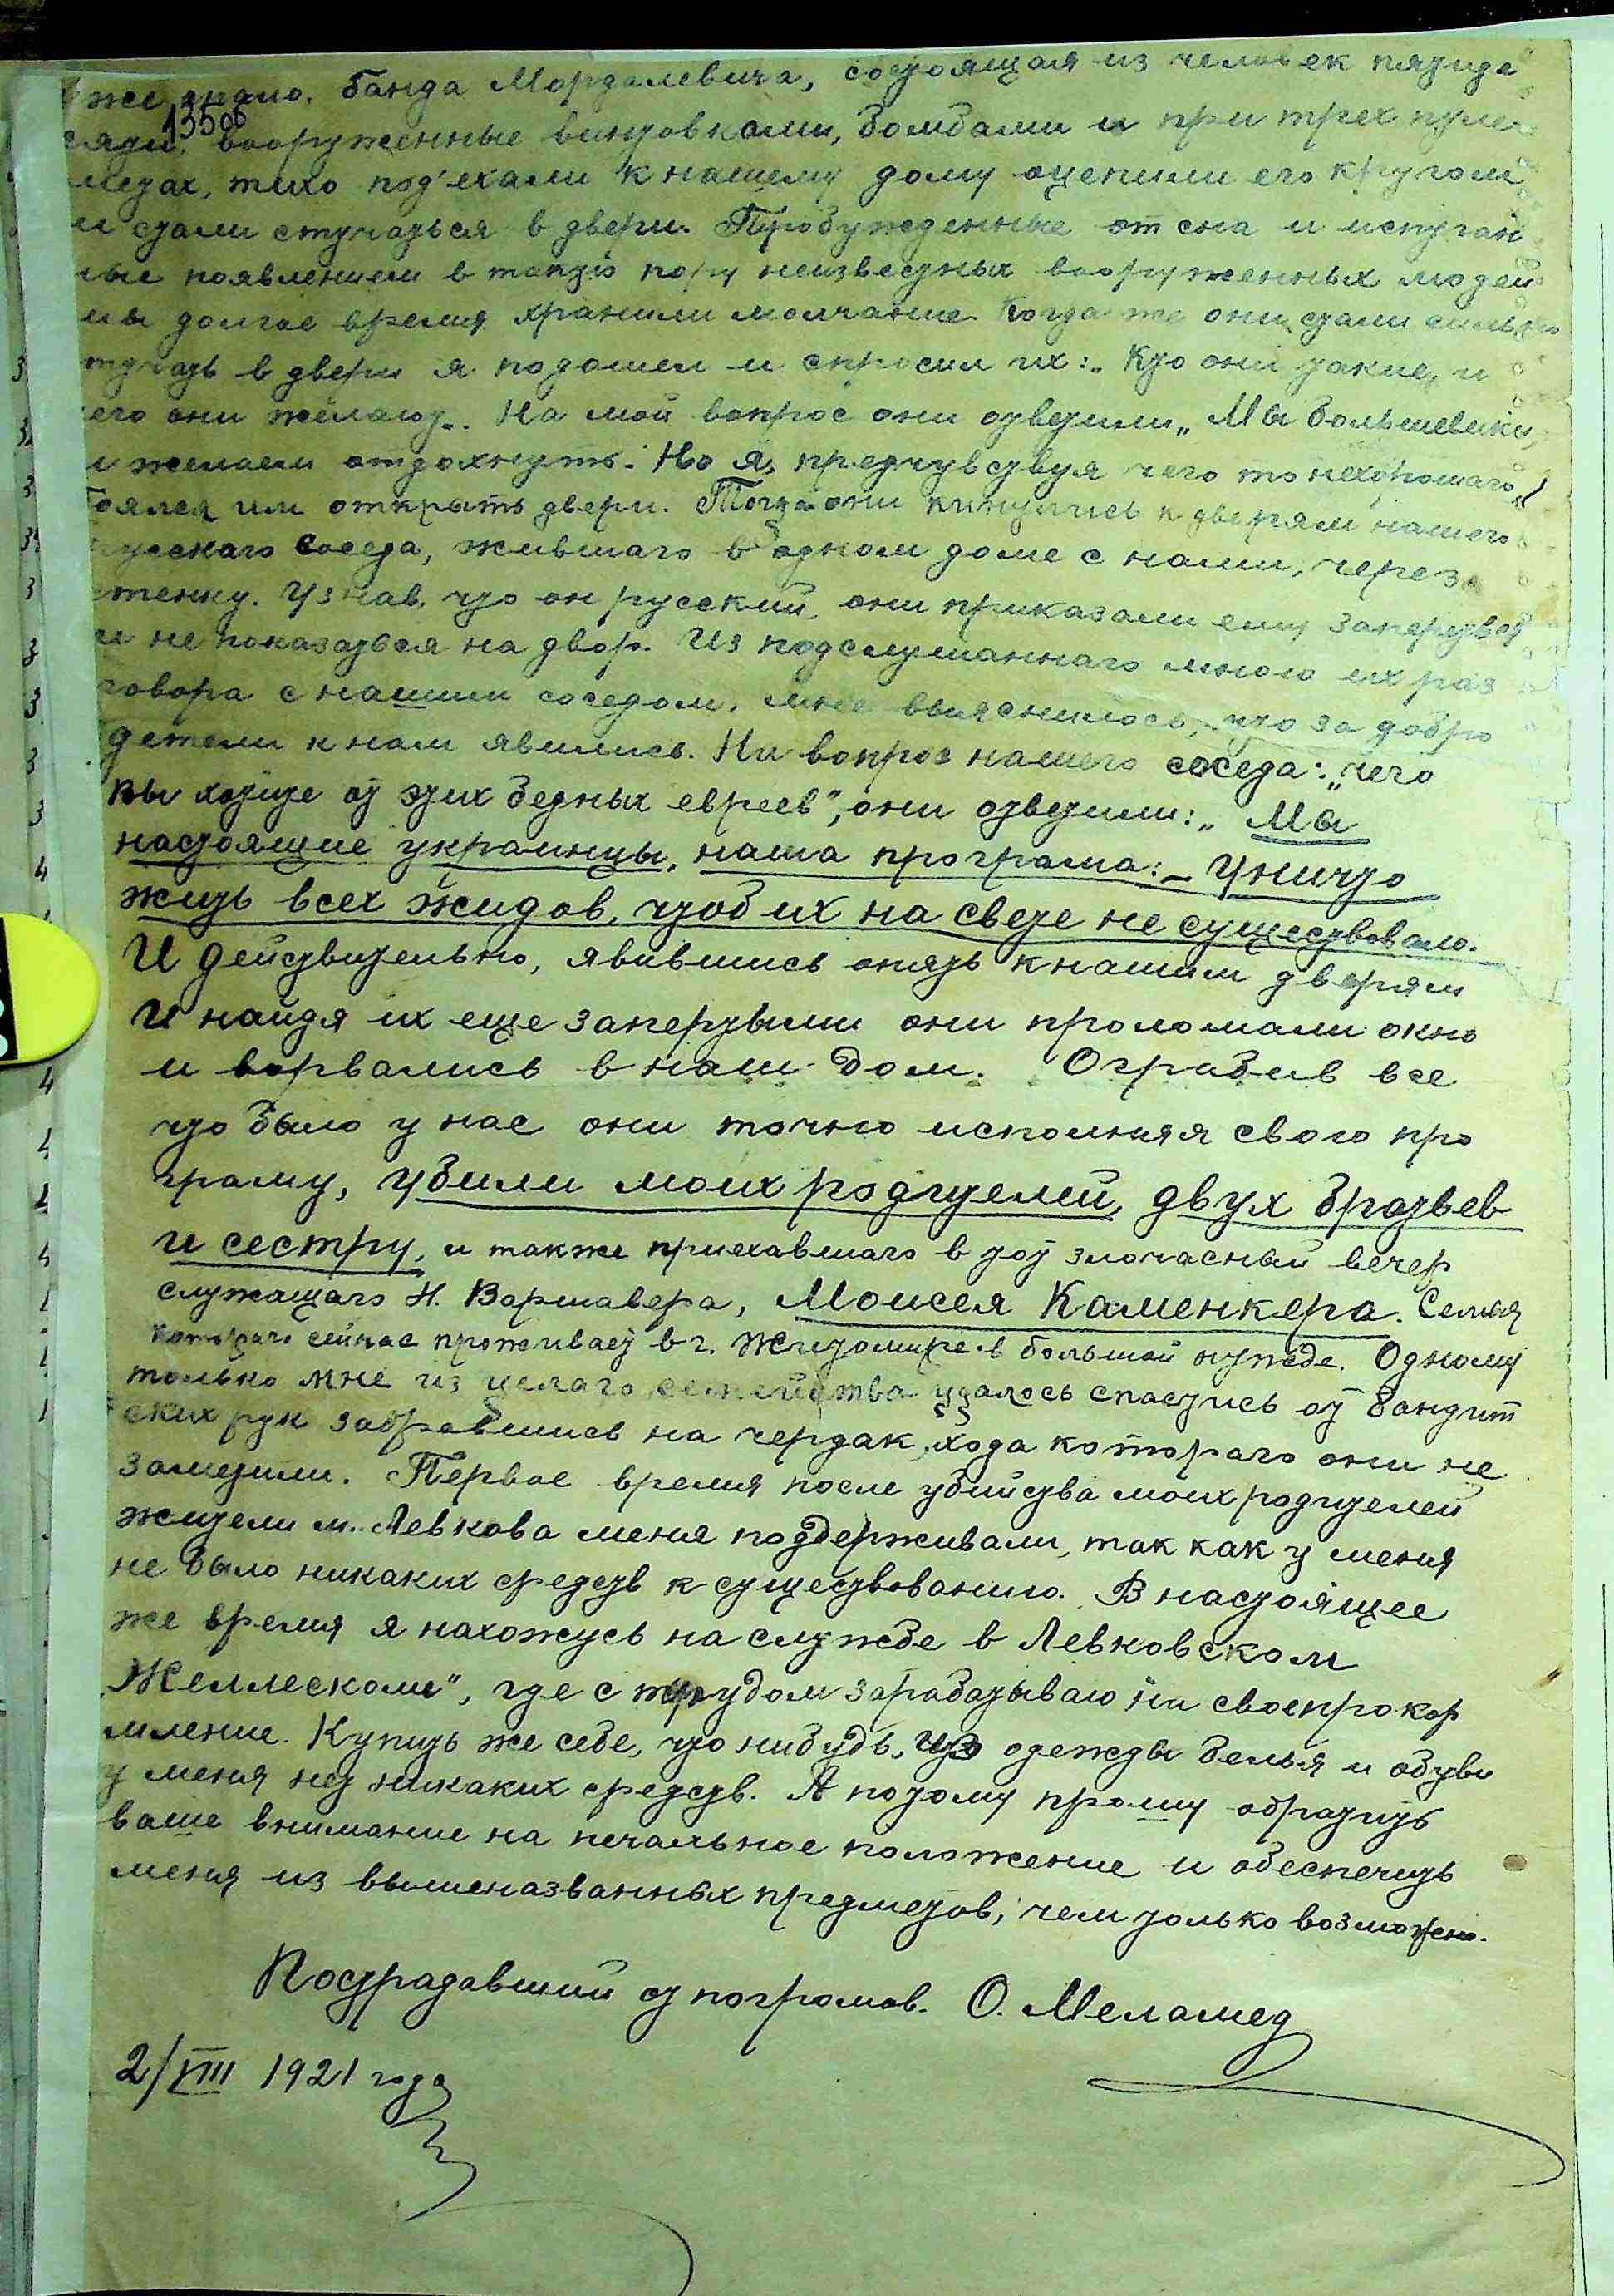 же спало. Банда Мордалевича, состоящая из человек пятиде
135об
сяти, вооруженные винтовками, бомбами и при трех пуле
метах, тихо под'ехали к нашему дому оцепили его кругом
и стали стучаться в двери. Пробужденные от сна и испуган
ные появлением в такую пору неизвестных вооруженных людей
мы долгое время хранили молчание. Когда же они стали сильно
стучать в двери я подошел и спросил их: „Кто они такие, и
чего они желают„. На мой вопрос они ответили „Мы большевики,
и желаем отдохнуть. Но я, предчувствуя чего то нехорошаго,
боялся им открыть двери. Тогда они кинулись к дверям нашего
русскаго соседа, жившаго в одном доме с нами, через
стенку. Узнав, что он русский, они приказали ему запереться
и не показаться на двор. Из подслушаннаго мною их раз
говора с нашим соседом, мне выяснилось, что за добро
детели к нам явились. На вопрос нашего соседа: „чего
вы хотите от этих бедных евреев", они ответили: „Мы
настоящие украинцы, наша програма: – Уничто
жить всех жидов, чтоб их на свете не существовало.
И действительно, явившись опять к нашим дверям
и найдя их еще запертыми они проломали окно
и ворвались в наш дом. Ограбив все
что было у нас они точно исполняя свою про
граму, убили моих родителей, двух братьев
и сестру, и также приехавшаго в тот злочасный вечер
служащаго Н. Варшавера, Моисея Каменкера. Семья
котораго сейчас проживает в г. Житомире в большой нужде. Одному
только мне из целаго семейства удалось спастись от бандит
ских рук забравшись на чердак, хода котораго они не
заметили. Первое время после убийства моих родителей
жители м. Левкова меня поддерживали, так как у меня
не было никаких средств к существованию. В настоящее
же время я нахожусь на службе в Левковском
„Желлескоме", где с трудом зарабатываю на свое прокор
мление. Купить же себе, что нибудь, из одежды белья и обуви
у меня нет никаких средств. А потому прошу обратить
ваше внимание на печальное положение и обеспечить
меня из вышеназванных предметов, чем только возможно.
Пострадавший от погромов. О. Меламед
2/VIII 1921 года